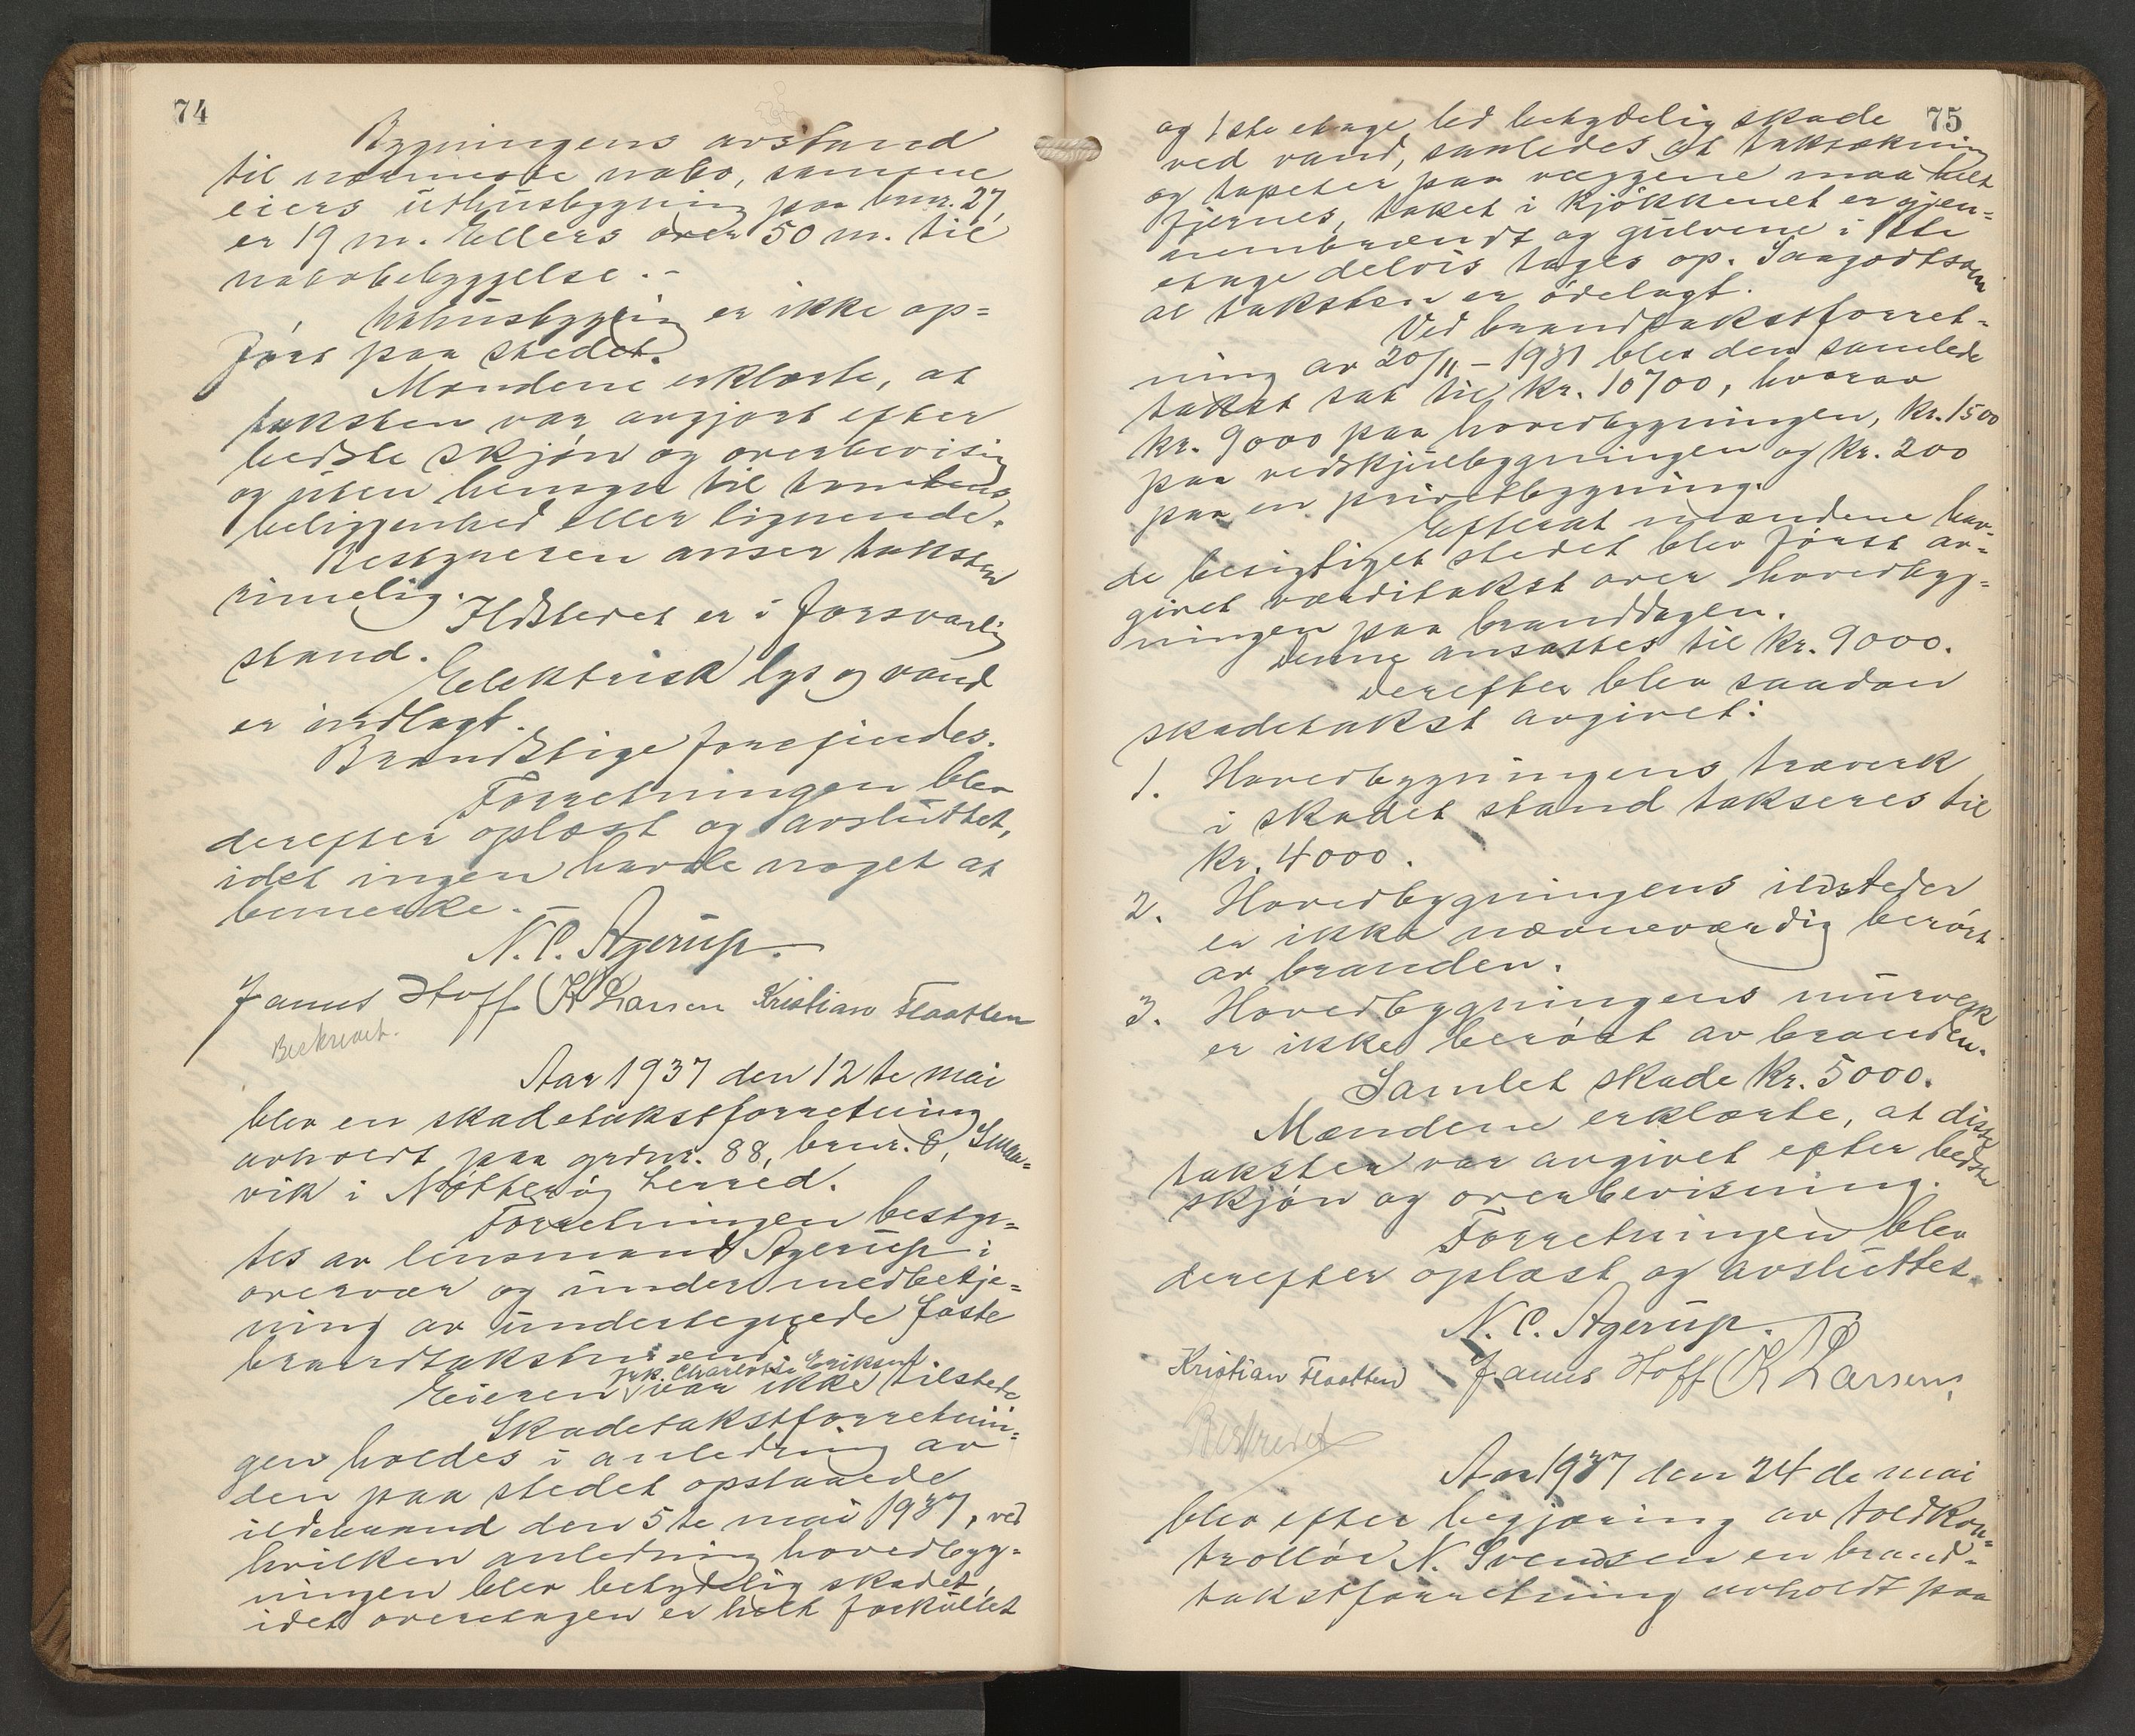 74
Bygningens avstand
til nærmeste nabo, samme
eiers uthusbygning paa brnr. 27,
er 19 m. Ellers over 50 m. til
nabobebyggelse.-
er ikke op=
ført paa stedet.
Mændene erklærte, at
taksten var avgjort efter
bedste skjøn og overbevisning
og uten hensyn til tomtens
beliggenhed eller lignende.
Bestyreren anser taksten
rimelig.
Ildstedet er i forsvarlig
stand.
Elektrisk lys og vand
er indlagt.
Brandstige forefindes.
Forretningen blev
derefter oplæst og avsluttet,
idet ingen havde noget at
bemerke.-
N. C. Agerup.
James Hoff K Larsen Kristian Flaatten
Beskrevet.
Aar 1937 den 12te mai
blev en skadetakstforretning
avholdt paa grdnr. 88, brnr. 8, Smaa=
vik i Nøtterøy herred.
Forretningen besty=
tes av lensmand Agerup i
overvær og under medbetje=
ning av undertegnede faste
brandtakstmænd.
frk. Charlotte Eriksen
Eieren var ikke tilstede.
Skadetakstforretnin=
gen holdes i anledning av
den paa stedet opstaaede
ildebrand den 5te mai 1937, ved
hvilken anledning hovedbyg=
ningen blev betydelig skadet,
idet overetagen er helt forkullet
75
og 1ste etage led betydelig skade
ved vand, saaledes at taktækning
og tapeter paa væggene maa helt
fjernes, taket i kjøkkenet er gjen=
nembrændt og gulvene i 1ste
etage delvis tages op. Saagodtsom
al taksten er ødelagt.
Ved brandtakstforret=
ning av 20/11 - 1931 blev den samlede
takst sat til kr. 10700, hvorav
kr. 9000 paa hovedbygningen, kr. 1500
paa vedskjulbygningen og kr. 200
paa en privetbygning.
Efterat mændene hav=
de besigtiget stedet blev først av=
givet værditakst over hovedbyg=
ningen paa branddagen.
Denne ansattes til kr. 9000.
Derefter blev saadan
skadetakst avgivet:
1. Hovedbygningens træverk
i skadet stand takseres til
kr. 4000.
2. Hovedbygningens ildsteder
er ikke nævneværdig berørt
av branden.
3. Hovedbygningens murverk
er ikke berørt av branden.
Samlet skade kr. 5000.
Mændene erklærte, at disse
takster var avgivet efter bedste
skjøn og overbevisning.
Forretningen blev
derefter oplæst og avsluttet.
N. C. Agerup.
Kristian Flaatten James Hoff K Larsen,
Beskrevet
Aar 1937 den 24de mai
blev efter begjæring av toldkon=
trollør N. Svendsen en brand=
takstforretning avholdt paa